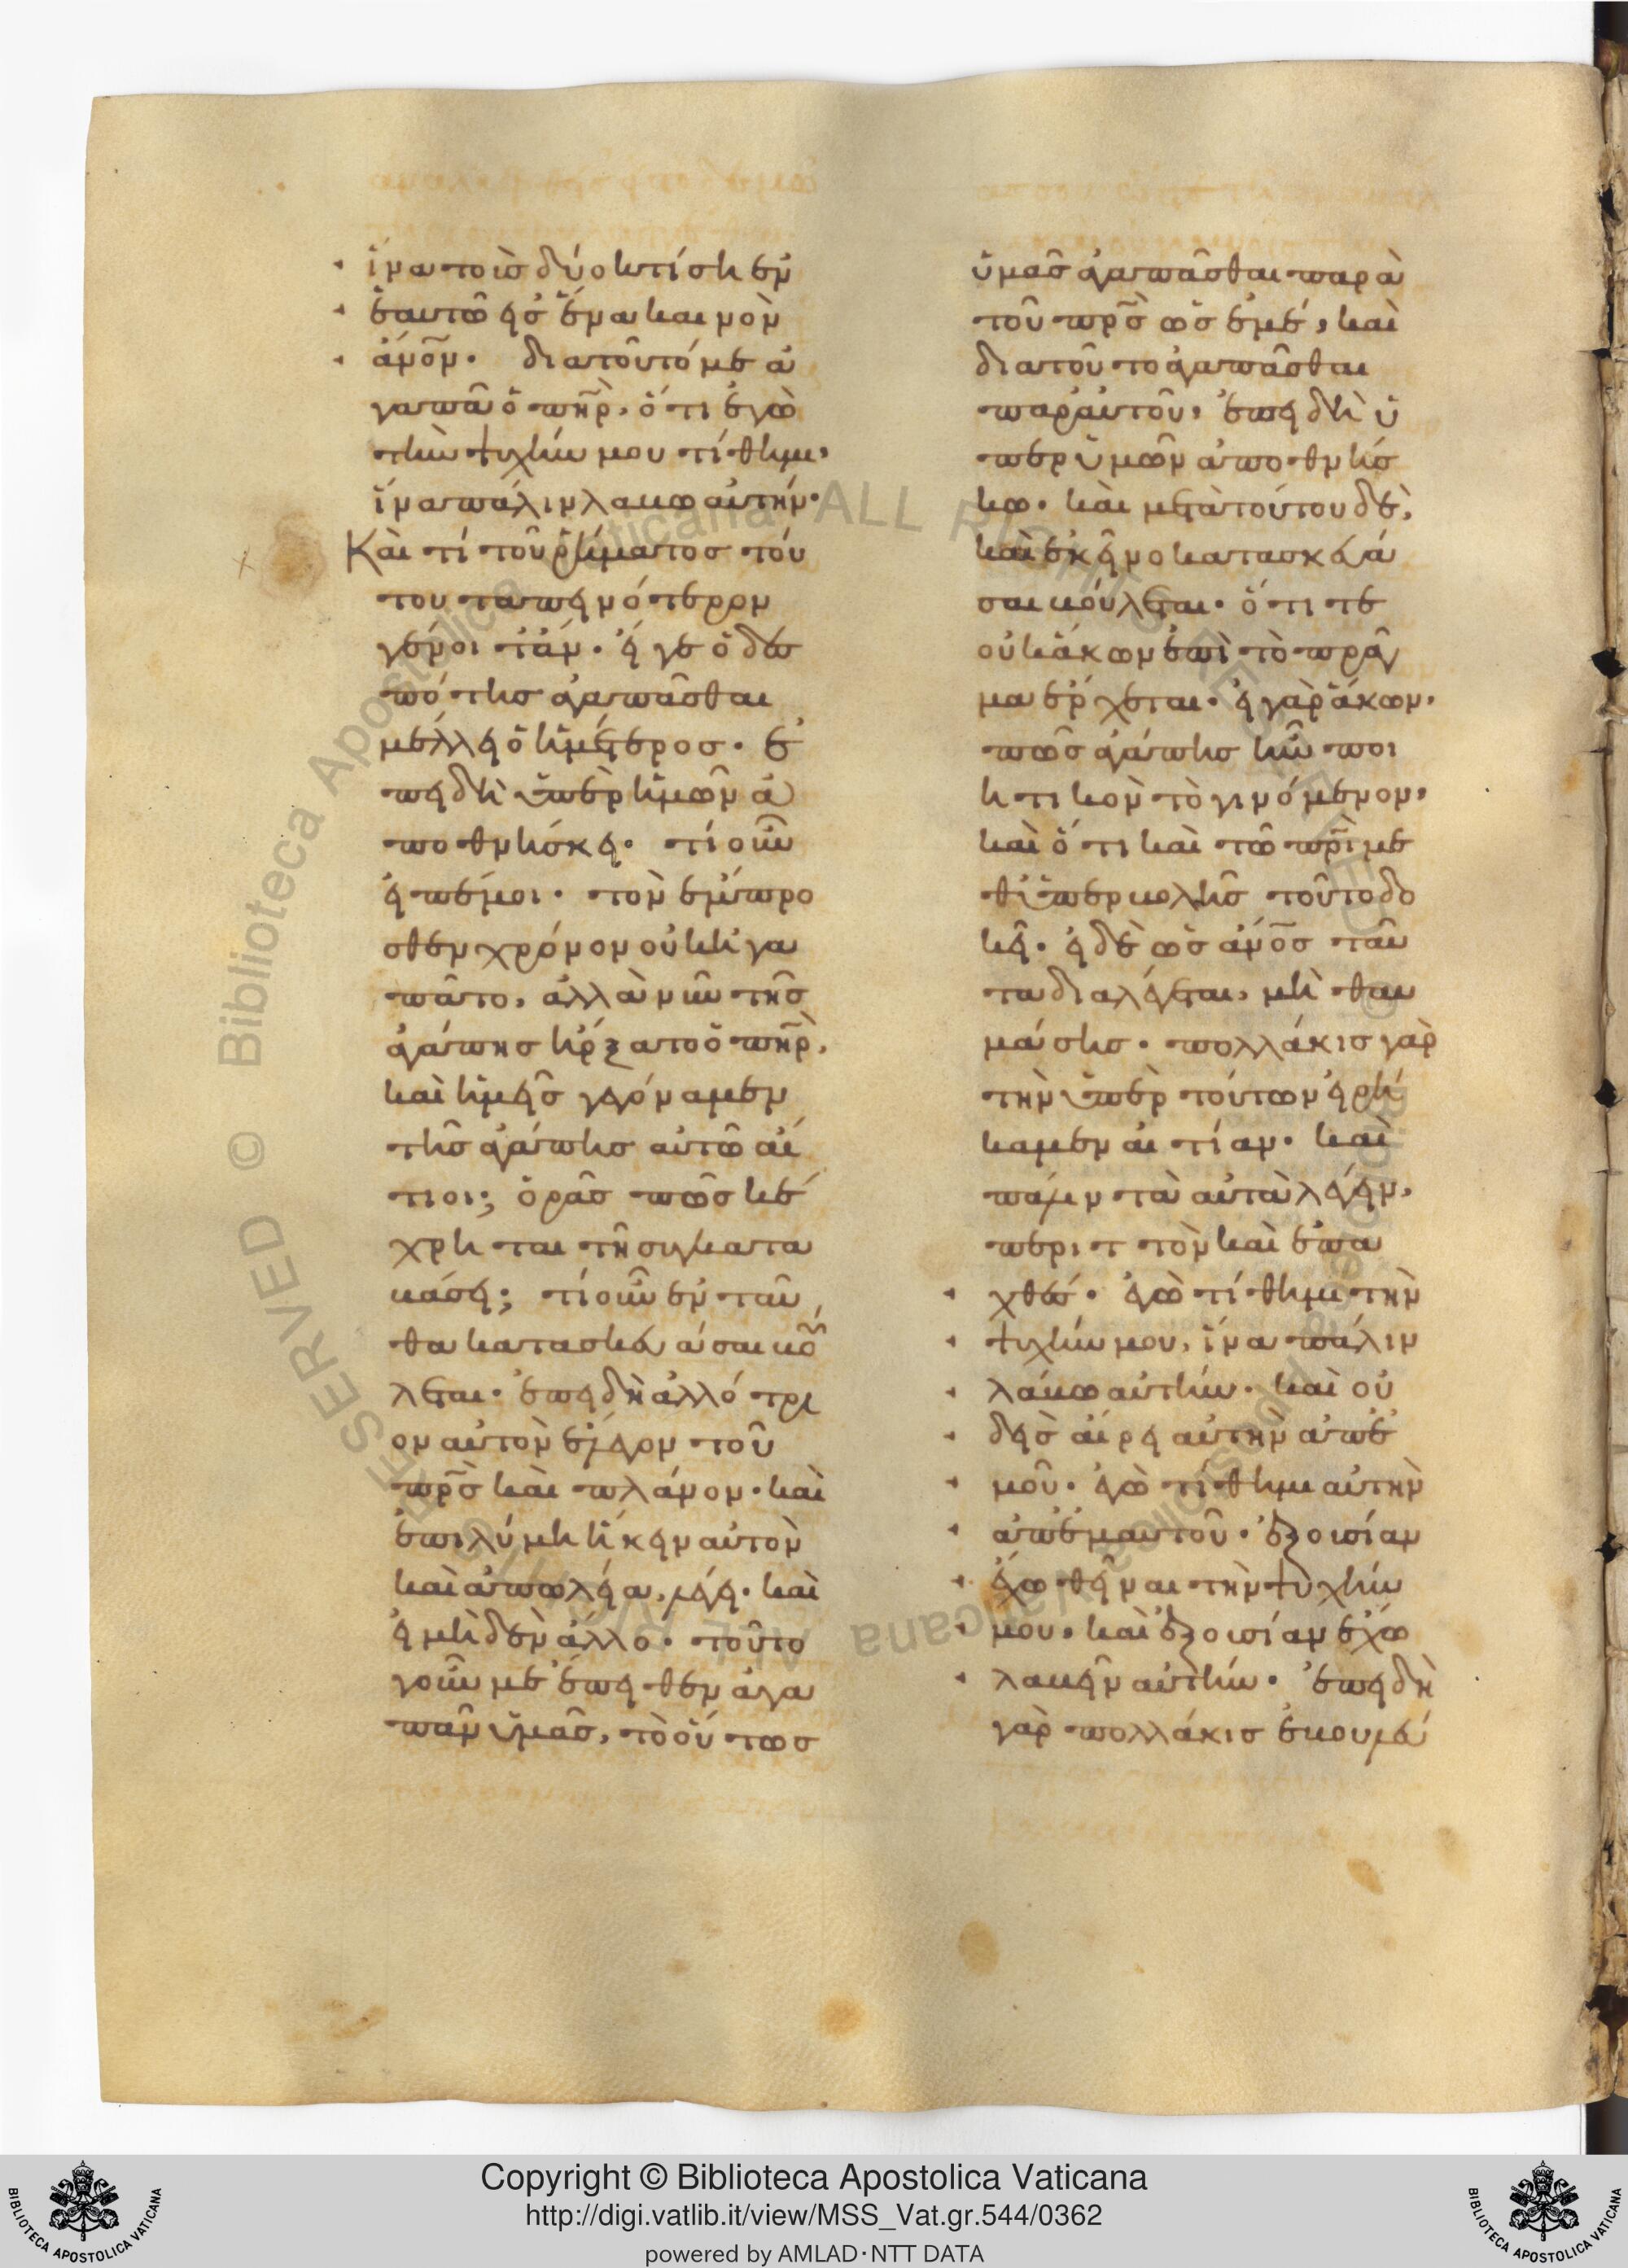 ἵνα τοὺς δύο κτίση ἐν
ἑαυτῶ εἰς ἕνα καινὸν
ἄνον. διατοῦτό με ἀ
γαπᾶ ὁ πηρ, ὅτι ἐγὼ
τὴν ψυχήν μου τίθημι,
ἵνα πάλιν λάβω αὐτήν.
Καὶ τί τοῦ ῥήματος τού
του ταπεινότερον
γένοιτ' ἄν. εἴ γε ὁ δεσ
πότης ἀγαπᾶσθαι
μέλλει ὁ ἡμέτερος. ἐ
πειδὴ ὑπὲρ ἡμῶν ἀ
ποθνήσκει. τί οὖν
εἰπέ μοι. τὸν ἔμπρο
σθεν χρόνον οὐκ ἠγα
πᾶτο, ἀλλὰ νῦν τῆς
ἀγάπης ἤρξατο ὁ πηρ,
καὶ ἡμεῖς γεγόναμεν
τῆς ἀγάπης αὐτῶ αἴ
τιοι; ὁρᾶς πῶς κέ
χρηται τῆ συγκατα
βάσει; τί οὖν ἐνταῦ
θα κατασκευάσαι βού
λεται. ἐπειδὴ ἀλλότρι
ον αὐτὸν ἔλεγον τοῦ
πρς καὶ πλάνον. καὶ
ἐπὶ λύμη ἥκειν αὐτὸν
καὶ ἀπωλεία, λέγει. καὶ
εἰ μηδὲν ἄλλο. τοῦτο
γοῦν με ἔπειθεν ἀγα
πᾶν ὑμᾶς, τὸ οὕτως
ὑμᾶς ἀγαπᾶσθαι παρὰ
τοῦ πρς ὡς ἐμέ, καὶ
διατοῦτο ἀγαπᾶσθαι
παρ' αὐτοῦ, ἐπειδὴ ὑ
περ ὑμῶν ἀποθνήσ
κω. καὶ μετὰ τούτου δὲ,
καὶ ἐκεῖνο κατασκευά
σαι βούλεται. ὅτι τε
οὐκ ἄκων ἐπὶ τὸ πρᾶγ
μα ἔρχεται. εἰ γὰρ ἄκων,
πῶς ἀγάπης ἦν ποι
ητικὸν τὸ γινόμενον,
καὶ ὅτι καὶ τῶ πρι με
θ' ὑπερβολῆς τοῦτο δο
κεῖ. εἰ δὲ ὡς ἄνος ταῦ
τα διαλέγεται, μὴ θαυ
μάσης. πολλάκις γὰρ
τὴν ὑπὲρ τούτων εἰρή
καμεν αἰτίαν. καὶ
πάλιν τὰ αὐτὰ λέγειν,
περιττὸν καὶ ἐπα
χθές. ἐγὼ τίθημι τὴν
ψυχήν μου, ἵνα πάλιν
λάβω αὐτήν. καὶ οὐ
δεὶς αἴρει αὐτὴν ἀπ' ἐ
μοῦ. ἐγὼ τίθημι αὐτὴν
ἀπ' ἐμαυτοῦ. ἐξουσίαν
ἔχω θεῖναι τὴν ψυχήν
μου, καὶ ἐξουσίαν ἔχω
λαβεῖν αὐτήν. ἐπειδὴ
γὰρ πολλάκις ἐβουλεύ
Copyright © Biblioteca Apostolica Vaticana
http://digi.vatlib.it/view/MSS_Vat.gr.544/0362
powered by AMLAD·NTT DATA